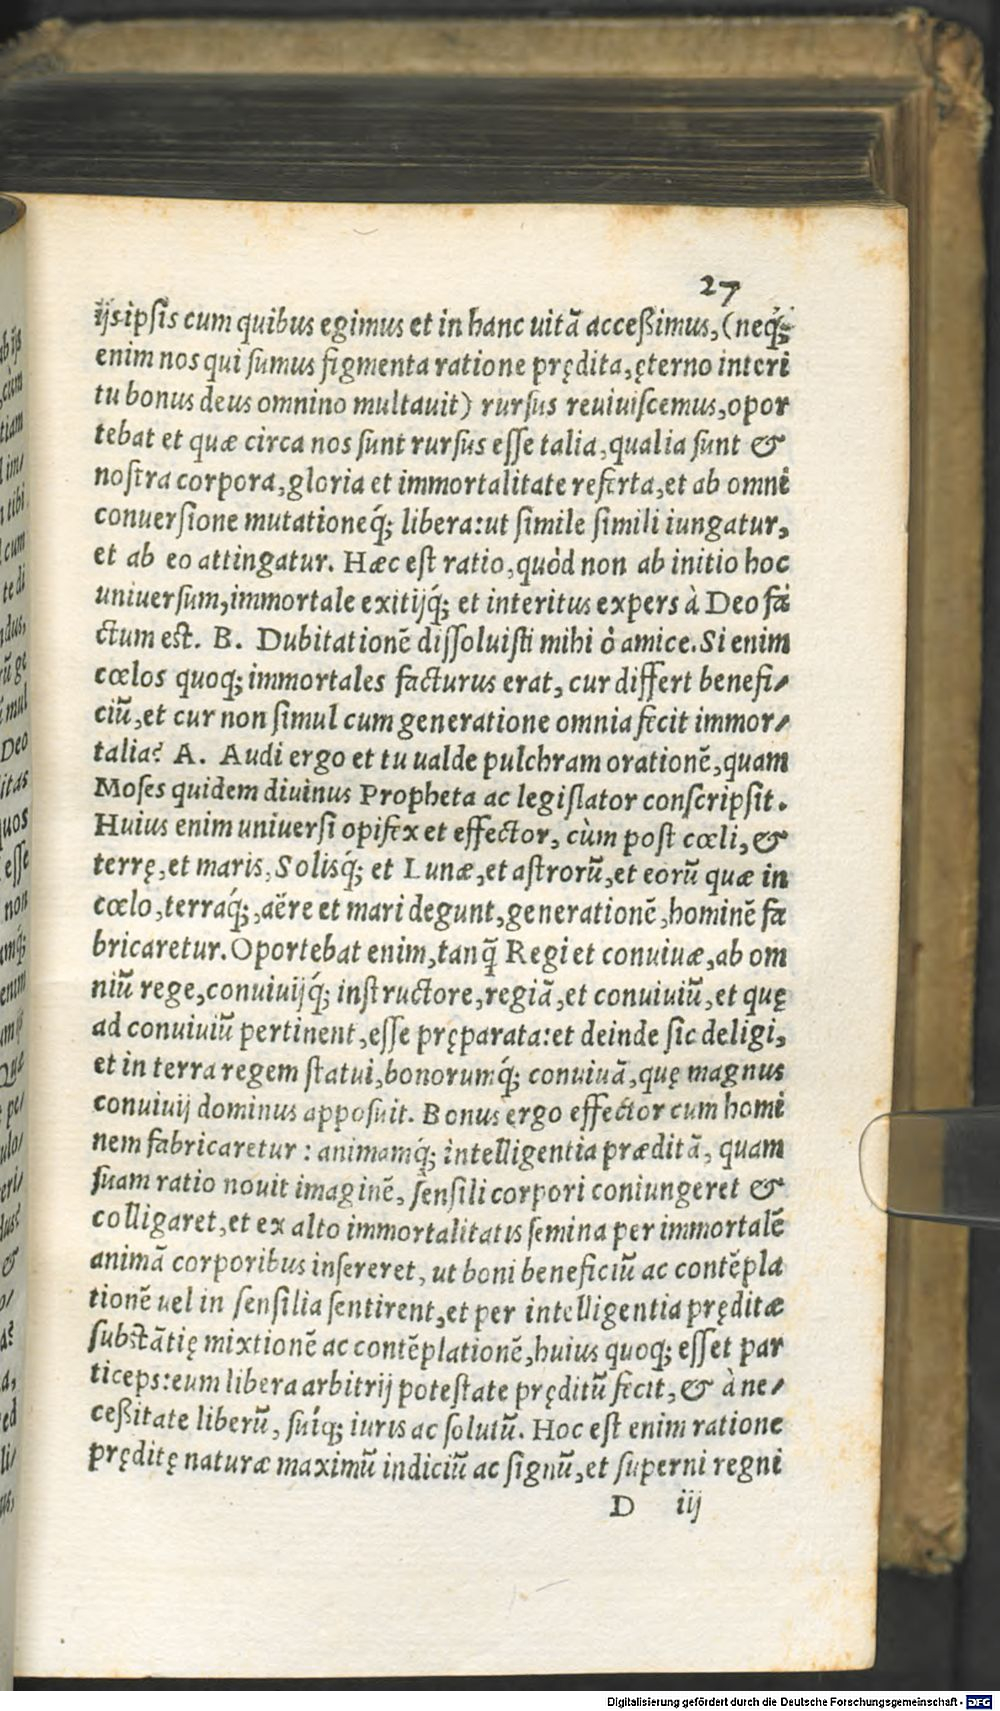 27
ijsipsis cum quibus egimus et in hanc uitā acceßimus, (neq́;
enim nos qui sumus figmenta ratione prędita, ęterno interi
tu bonus deus omnino multauit) rursus reuiuiscemus, opor
tebat et quæ circa nos sunt rursus esse talia, qualia sunt &
nostra corpora, gloria et immortalitate referta, et ab omni
conuersione mutationeq́; libera: ut simile simili iungatur,
et ab eo attingatur. Hæc est ratio, quòd non ab initio hoc
uniuersum, immortale exitijq́; et interitus expers à Deo fa
ctum est. B. Dubitationē dissoluisti mihi ò amice. Si enim
cœlos quoq; immortales facturus erat, cur differt benefi/
ciū, et cur non simul cum generatione omnia fecit immor/
talia? A. Audi ergo et tu ualde pulchram orationē, quam
Moses quidem diuinus Propheta ac legislator conscripsit.
Huius enim uniuersi opifex et effector, cùm post cœli, &
terrę, et maris, Solisq́; et Lunæ, et astrorū, et eorū quæ in
cœlo, terraq́;, aëre et mari degunt, generationē, hominē fa
bricaretur. Oportebat enim, tanq̄ Regi et conuiuæ, ab om
niū rege, conuiuijq́; instructore, regiā, et conuiuiū, et quę
ad conuiuiū pertinent, esse pręparata: et deinde sic deligi,
et in terra regem statui, bonorumq́; conuiuā, quę magnus
conuiuij dominus apposuit. Bonus ergo effector cum homi
nem fabricaretur: animamq́; intelligentia præditā, quam
suam ratio nouit imaginē, sensili corpori coniungeret &
colligaret, et ex alto immortalitatis semina per immortalē
animā corporibus insereret, ut boni beneficiū ac contēpla
tionē uel in sensilia sentirent, et per intelligentia pręditæ
substātię mixtionē ac contēplationē, huius quoq; esset par
ticeps: eum libera arbitrij potestate pręditū fecit, & à ne/
ceßitate liberū, suíq; iuris ac solutū. Hoc est enim ratione
prędite̜ naturæ maximū indiciū ac signū, et superni regni
D iij
Digitalisierung gefördert durch die Deutsche Forschungsgemeinschaft - DFG